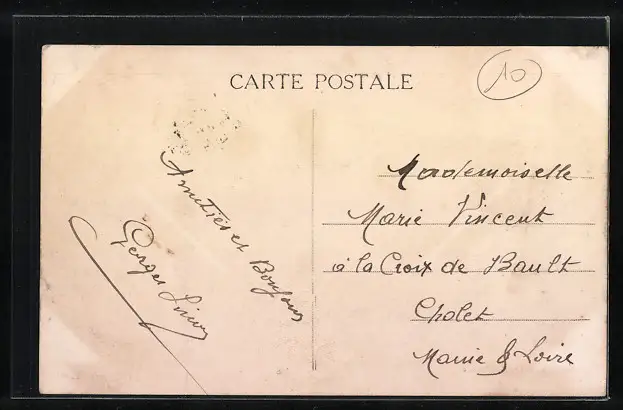 CARTE POSTALE
10
Amitiés et Bonjour
Georges
Mademoiselle
Marie Vincent
à la Croix de Bault
Cholet
Maine & Loire